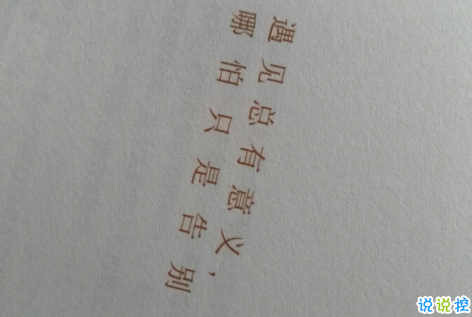 遇见总有意义，
哪怕只是告别
说说控